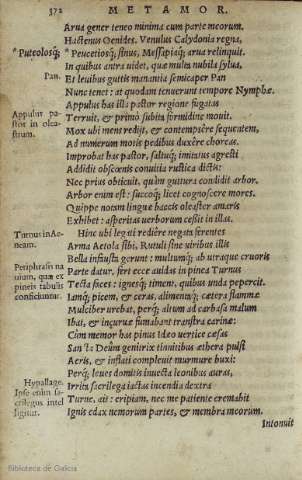 372 METAMOR.
Arua gener teneo minima cum parte meorum.
Hactenus Oenides. Venulus Calydonia regna,
*Puteolosq; *Peucetiosq; sinus, Messapiaq; arua relinquit.
In quibus antra uidet, quæ multa nubila sylua,
Pan. Et leuibus guttis manantia semicaper Pan
Nunc tenet: at quodam tenuerunt tempore Nymphæ.
Appulus has illa pastor regione fugatas
Appulus pa-
stor in olea-
strum.
Terruit, & primò subita formidine mouit.
Mox ubi mens redijt, & contempsère sequentem,
Ad numerum motis pedibus duxère choreas.
Improbat has pastor, saltuq; imitatus agresti
Addidit obscœnis conuitia rustica dictis:
Nec prius obticuit, quàm guttura condidit arbor.
Arbor enim est: succoq; licet cognoscere mores.
Quippe notam linguæ baccis oleaster amaris
Exhibet: asperitas uerborum cessit in illas.
Turnus in Ae-
neam.
Hinc ubi legati rediêre negata ferentes
Arma Aetola sibi, Rutuli sine uiribus illis
Bella instructa gerunt: multumq; ab utraque cruoris
Periphrasis na
uium, quæ ex
pineis tabulis
conficiuntur.
Parte datur. fert ecce auidas in pinea Turnus
Texta faces: ignesq; timent, quibus unda pepercit.
Iamq; picem, & ceras, alimentaq; cætera flammæ
Mulciber urebat, perq; altum ad carbasa malum
Ibat, & incuruæ fumabant transtra carinæ:
Cùm memor has pinus Ideo uertice cæsas
Sancta Deûm genitrix tinnitibus æthera pulsi
Aeris, & inflati compleuit murmure buxi:
Perq; leues domitis inuecta leonibus auras,
Hypallage.
Ipse enim sa-
crilegus intel
ligitur.
Irrita sacrilega iactas incendia dextra
Turne, ait: eripiam, nec me patiente cremabit
Ignis edax nemorum partes, & membra meorum.
Intonuit
Biblioteca de Galicia